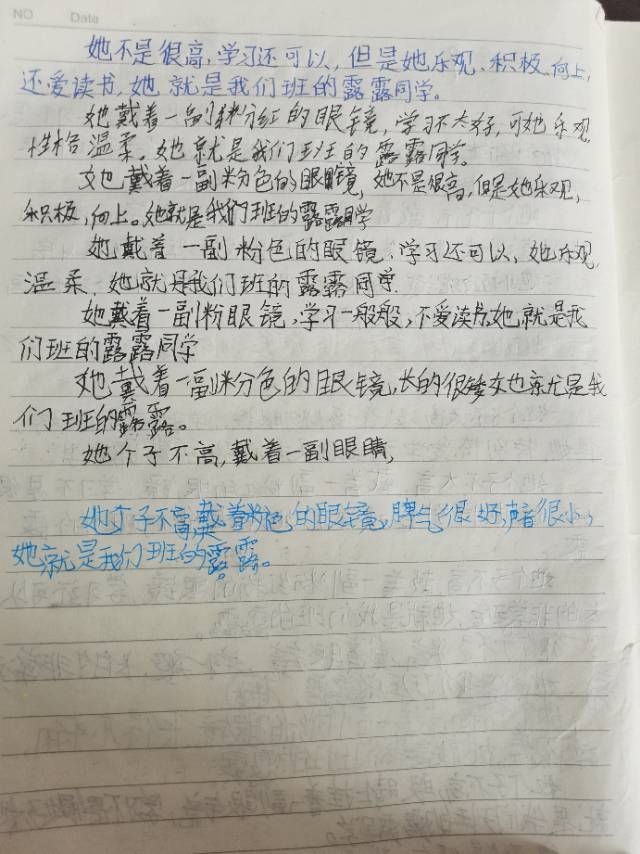 NO Date
她不是很高,学习还可以,但是她乐观、积极、向上,
还爱读书,她就是我们班的露露同学。
她戴着一副粉红的眼镜,学习不太好,可她乐观,
性格温柔。她就是我们班的露露同学。
她戴着一副粉色的眼镜,她不是很高,但是她乐观,
积极,向上。她就是我们班的露露同学
她戴着一副粉色的眼镜,学习还可以,她乐观,
温柔,她就是我们班的露露同学.
她戴着一副粉眼镜,学习一般般,不爱读书,她就是我
们班的露露同学
她戴着一副粉色的眼镜,长的很矮,她就是我
们班的露露。
她个子不高,戴着一副眼睛,
她个子不高,戴着粉色的眼镜,脾气很好,声音很小,
她就是我们班的露露。